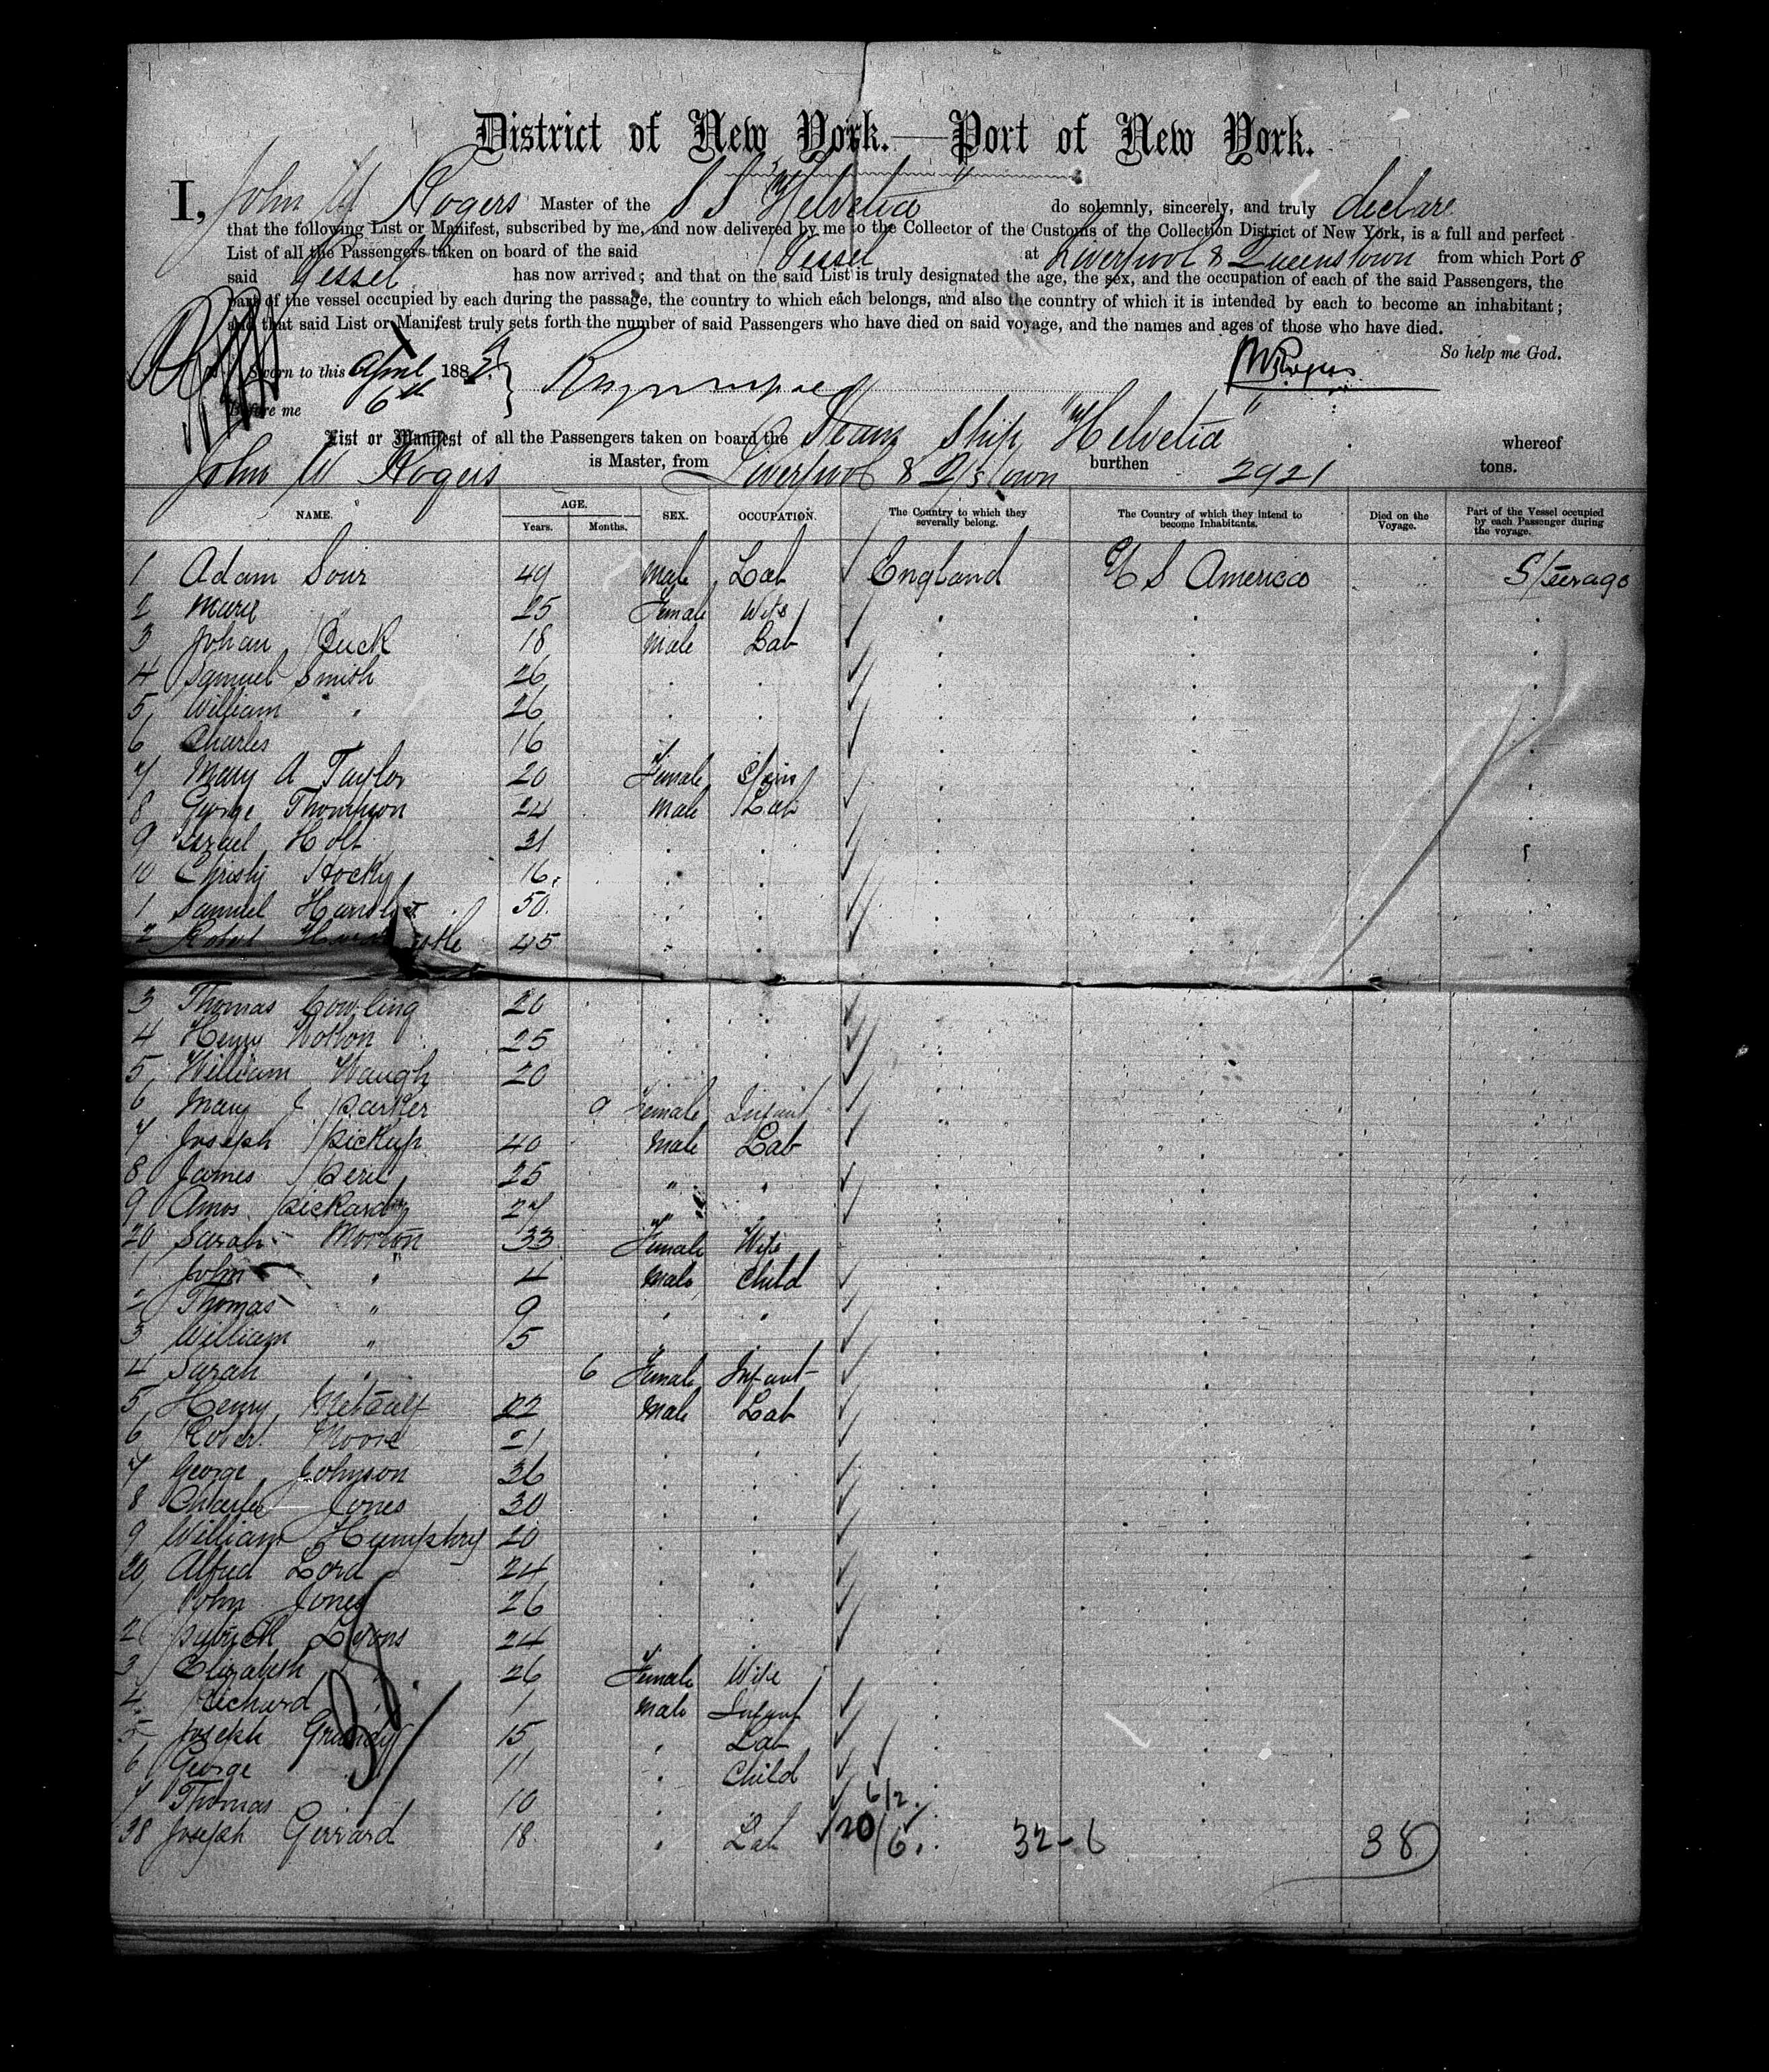 District of New York.—Port of New York.
I, John W Rogers Master of the S S "Helvetia" do solemnly, sincerely, and truly declare
that the following List or Manifest, subscribed by me, and now delivered by me to the Collector of the Customs of the Collection District of New York, is a full and perfect
List of all the Passengers taken on board of the said Vessel at Liverpool & Queenstown from which Port s
said Vessel has now arrived; and that on the said List is truly designated the age, the sex, and the occupation of each of the said Passengers, the
part of the vessel occupied by each during the passage, the country to which each belongs, and also the country of which it is intended by each to become an inhabitant;
and that said List or Manifest truly sets forth the number of said Passengers who have died on said voyage, and the names and ages of those who have died.
So help me God.
Sworn to this April 188
Before me 6th
List or Manifest of all the Passengers taken on board the Steam Ship "Helvetia" whereof
John W Rogers is Master, from Liverpool & Q/s town burthen 2921 tons.
NAME. AGE. Years. Months. SEX. OCCUPATION. The Country to which they severally belong. The Country of which they intend to become Inhabitants. Died on the Voyage. Part of the Vessel occupied by each Passenger during the voyage.
1 Adam 49 Male Lab England U S America Steerage
2 Marie 25 Female Wife
3 Johan 18 Male Lab
4 Samuel Smith 26 . .
5 William " 26 . .
6 Charles " 16 . .
7 Mary A Taylor 20 Female Spin
8 George Thompson 24 Male Lab
9 Israel Holt 31 . .
10 Christy 16 . .
1 Samuel 50 . .
2 Robert 45 . .
3 Thomas Cowling 20 . .
4 Henry 25 . .
5 William Waugh 20
6 Mary J Parker 9 Female Infant
7 Joseph Pickup 40 Male Lab
8 James 25 " "
9 Amos 27 "
20 Sarah Morton 33 Female Wife
1 John " 4 Male Child
2 Thomas " 9 " "
3 William " 5
4 Sarah " 6 Female Infant
5 Henry Metcalf 22 Male Lab
6 Robert Moore 21 . .
7 George Johnson 36 . .
8 Charles Jones 30 . .
9 William Humphry 20 . .
30 Alfred Lord 24 . .
1 John Jones 26 . .
2 Patrick Lyons 24
3 Elizabeth " 26 Female Wife
4 Richard " 1 Male Infant
5 Joseph Grundy 15 " Lab
6 George 11 " Child
7 Thomas 10 " 6/2
38 Joseph Gerrard 18 " Lab 20/6 32-6 38